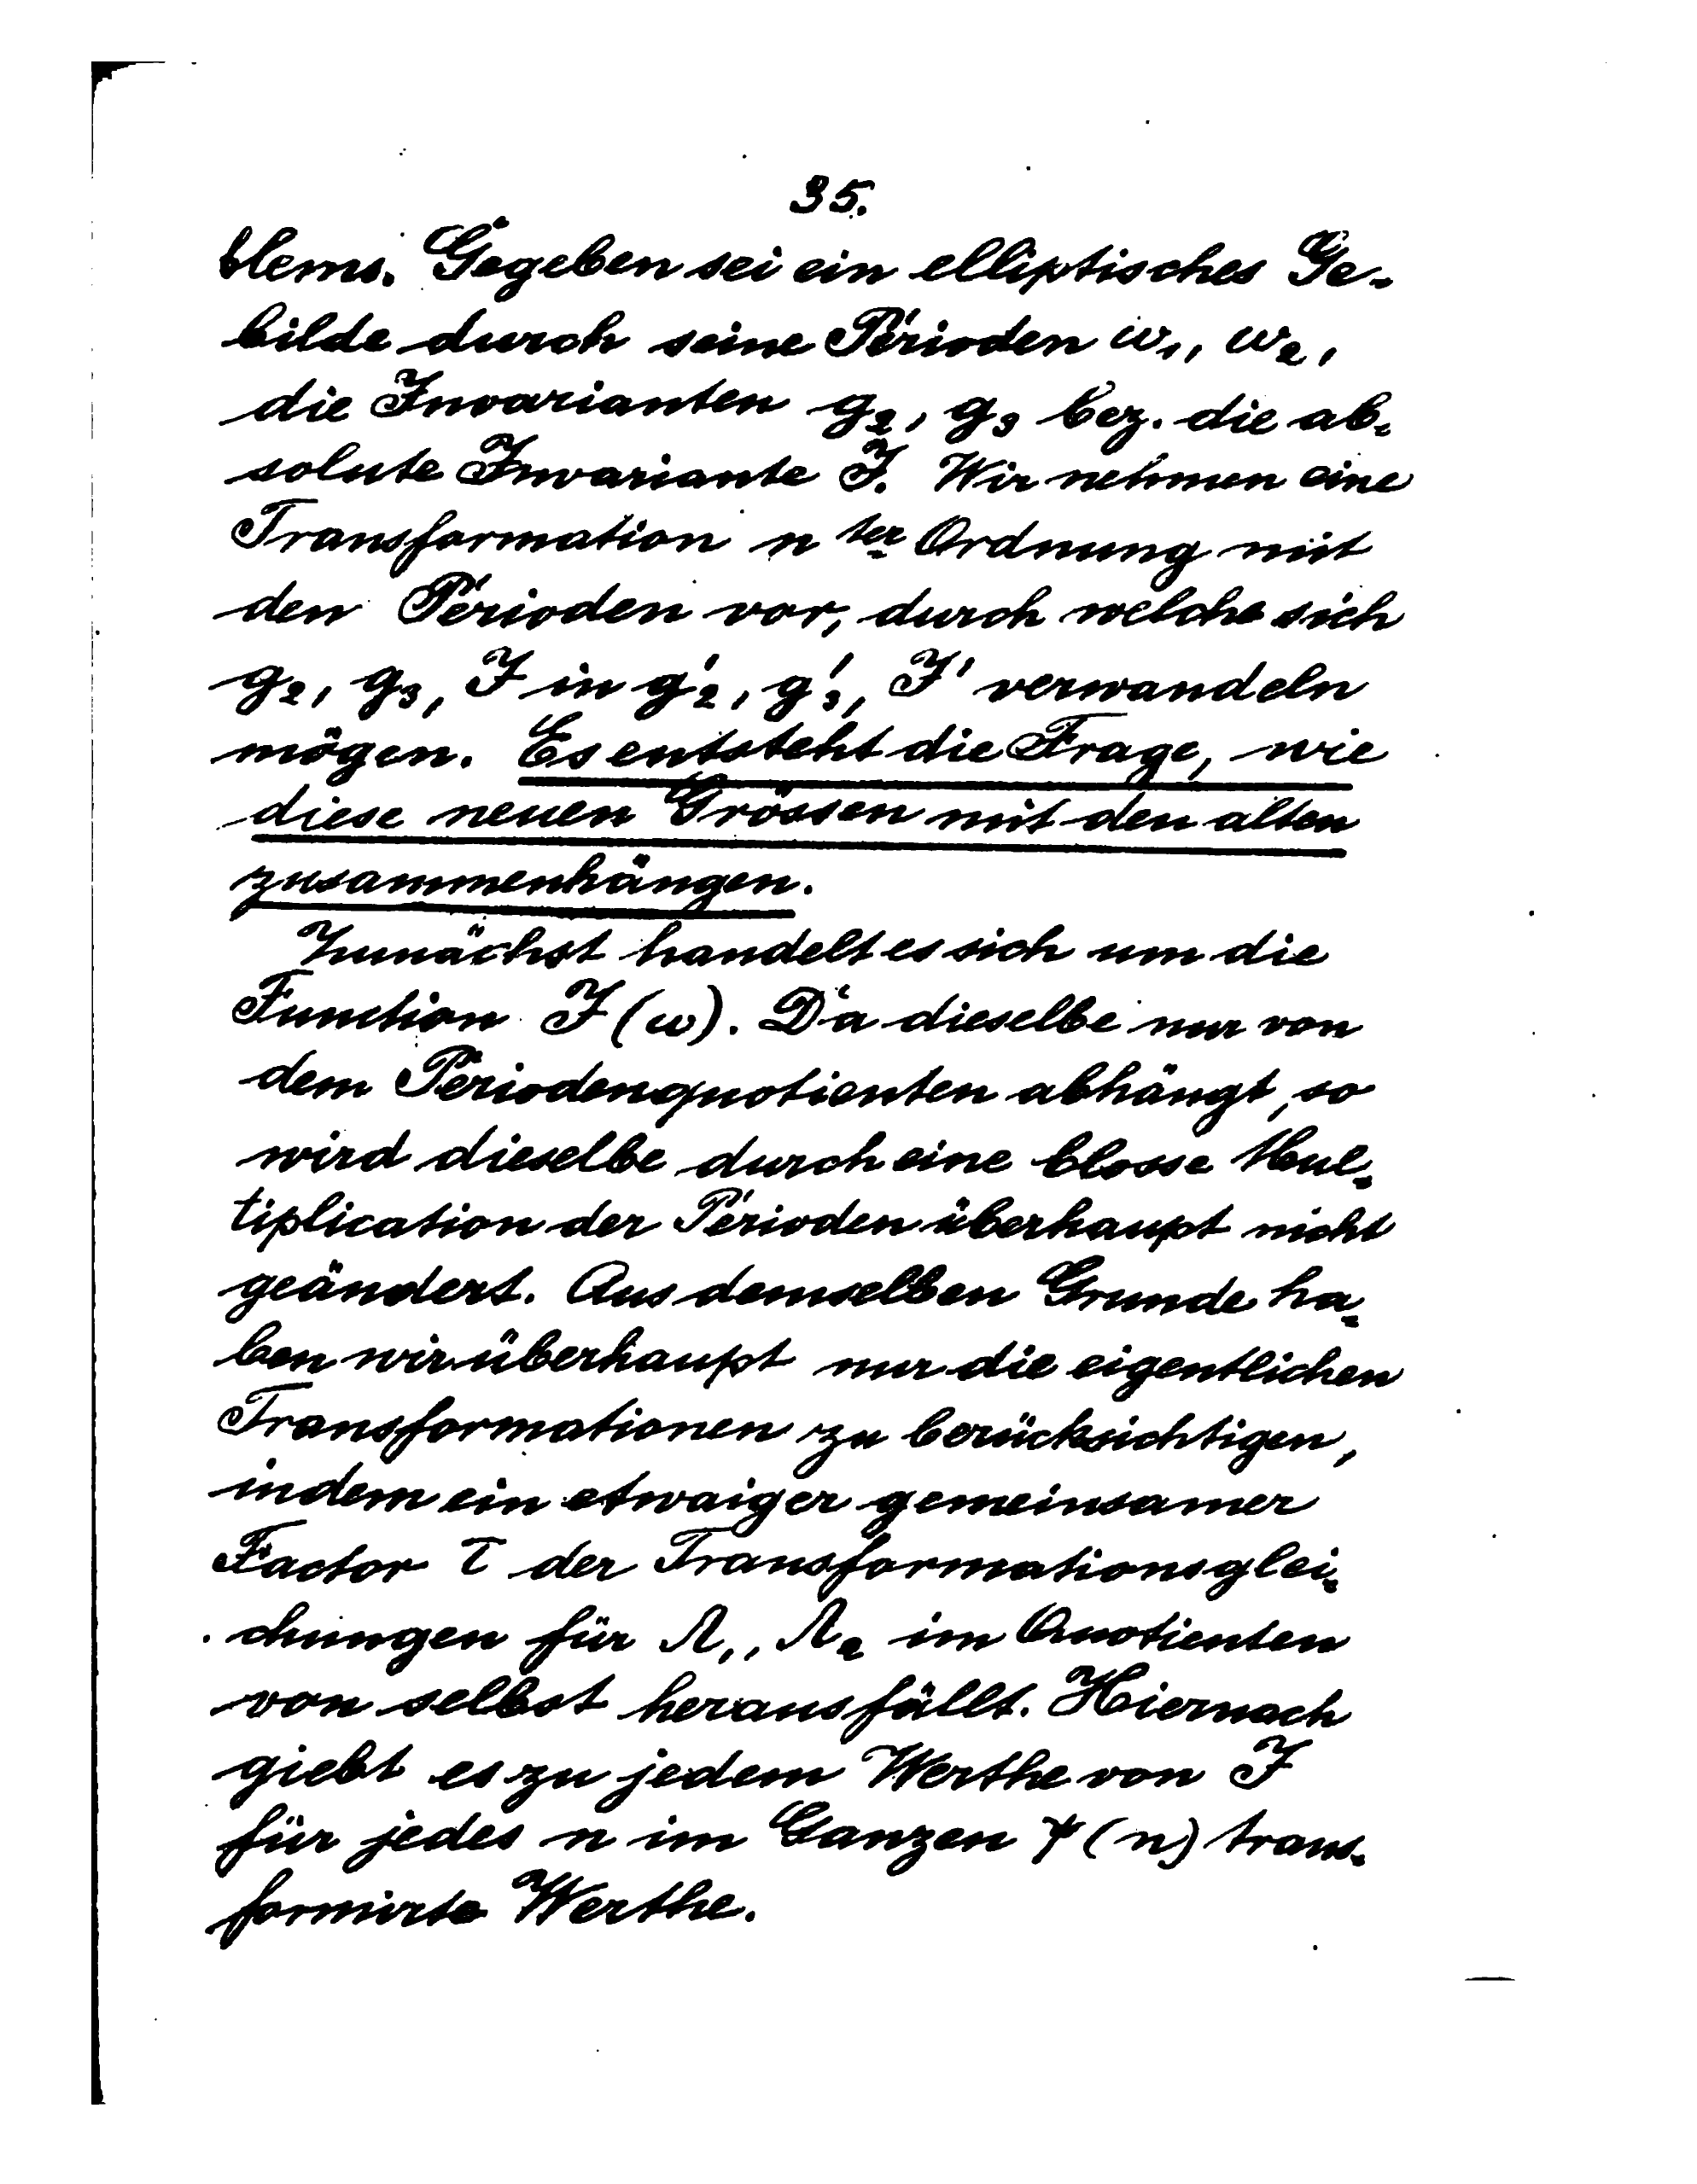 35.
blems. Gegeben sei ein elliptisches Ge-
bilde durch seine Perioden ω₁, ω₂,
die Invarianten g₂, g₃ bez. die ab-
solute Invariante J. Wir nehmen eine
Transformation n ter Ordnung mit
den Perioden vor, durch welche sich
g₂, g₃, J in g₂', g₃', J' verwandeln
mögen. Es entsteht die Frage, wie
diese neuen Grössen mit den alten
zusammenhängen.
Zunächst handelt es sich um die
Function J(ω). Da dieselbe nur von
dem Periodenquotienten abhängt, so
wird dieselbe durch eine blosse Mul-
tiplication der Perioden überhaupt nicht
geändert. Aus demselben Grunde ha-
ben wir überhaupt nur die eigentlichen
Transformationen zu berücksichtigen,
indem ein etwaiger gemeinsamer
Factor τ der Transformationsglei-
chungen für Λ₁, Λ₂ im Quotienten
von selbst herausfällt. Hiernach
giebt es zu jedem Werthe von J
für jedes n im Ganzen ψ(n) trans-
formirte Werthe.